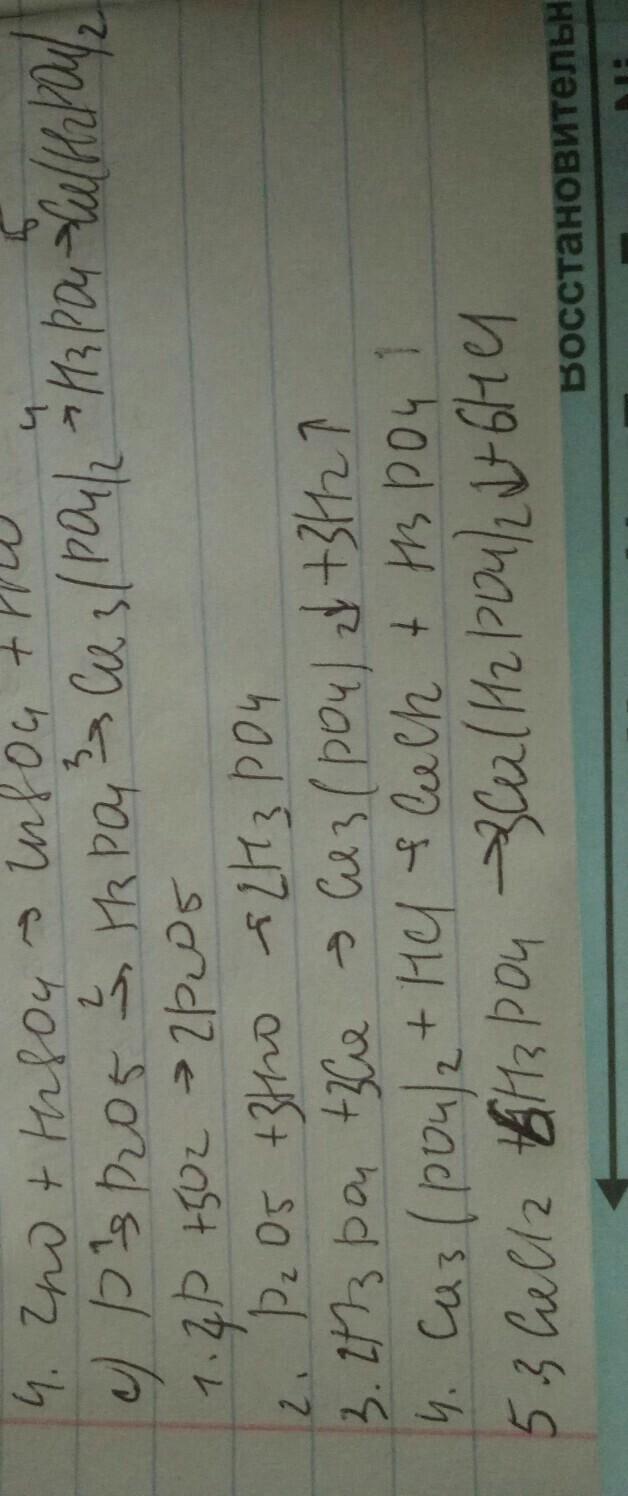 4. ZnO + H2SO4 → ZnSO4 + H2O
c) P →1 P2O5 →2 H3PO4 →3 Ca3(PO4)2 →4 H3PO4 →5 Ca(H2PO4)2
1. 4P + 5O2 → 2P2O5
2. P2O5 + 3H2O → 2H3PO4
3. 2H3PO4 + 3Ca → Ca3(PO4)2↓ + 3H2↑
4. Ca3(PO4)2 + HCl → CaCl2 + H3PO4
5. 3CaCl2 + 6H3PO4 → 3Ca(H2PO4)2↓ + 6HCl
Восстановительн
Ni